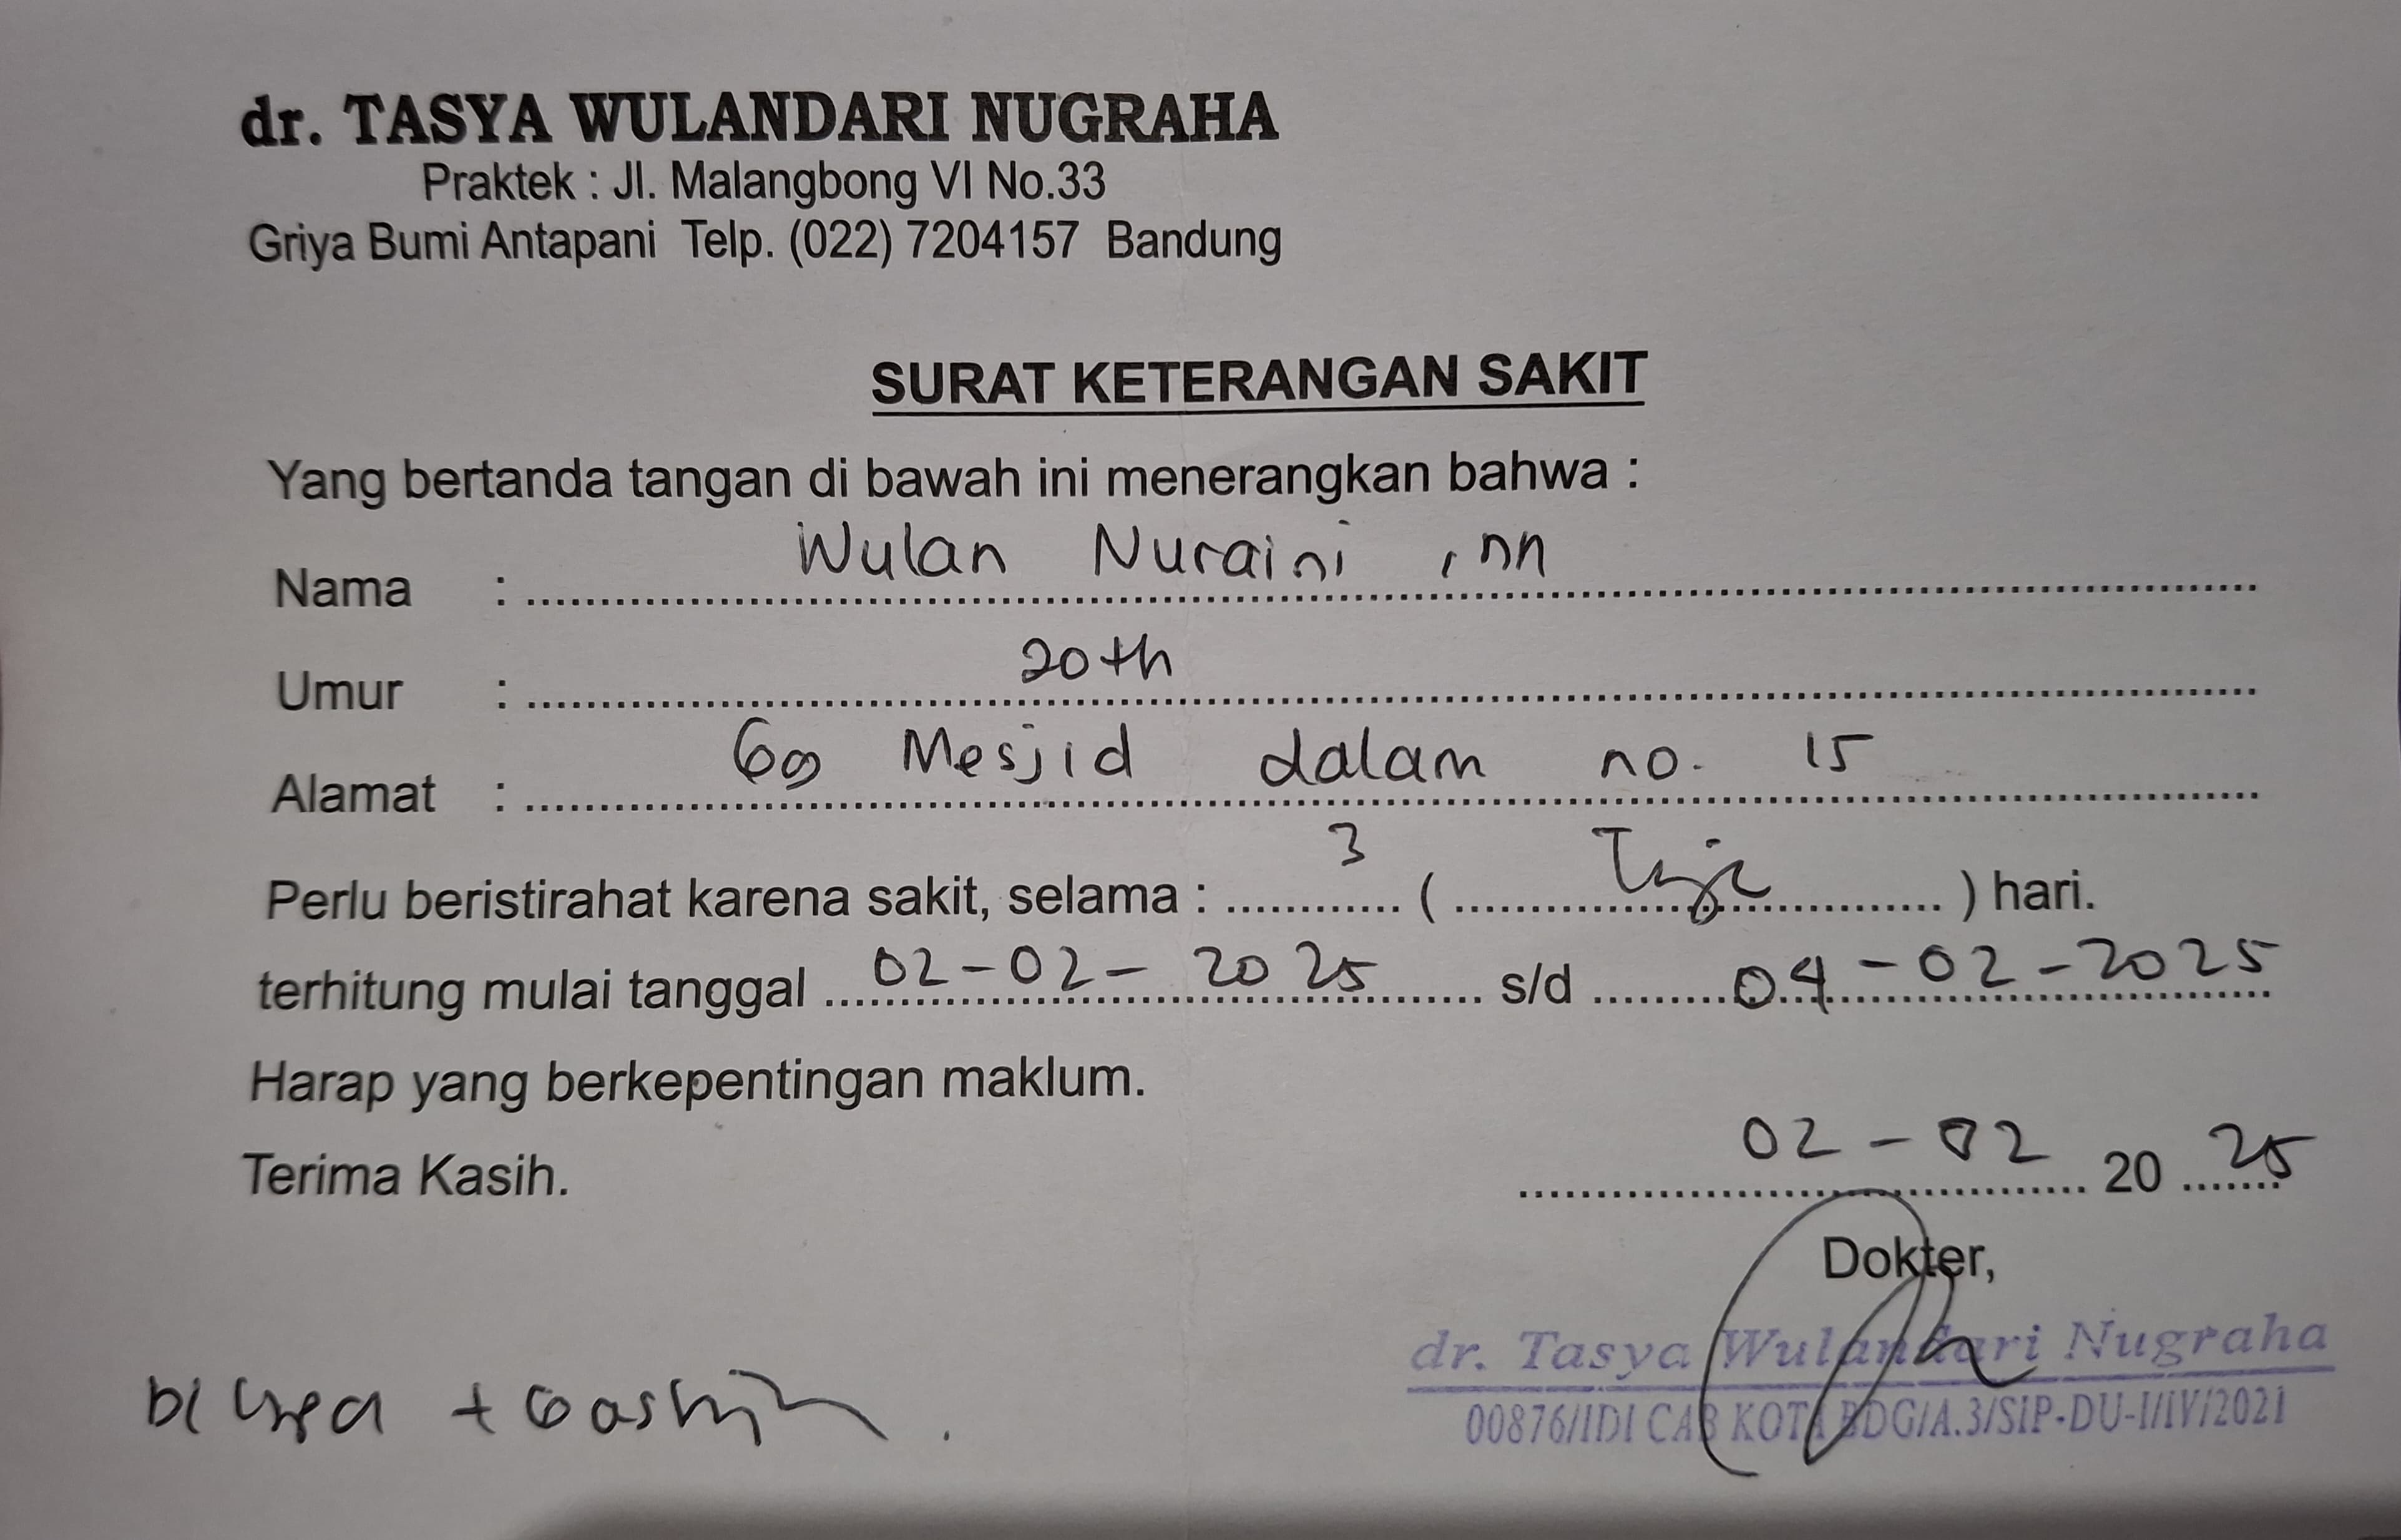 dr. TASYA WULANDARI NUGRAHA
Praktek : Jl. Malangbong VI No.33
Griya Bumi Antapani Telp. (022) 7204157 Bandung
SURAT KETERANGAN SAKIT
Yang bertanda tangan di bawah ini menerangkan bahwa :
Nama : Wulan Nuraini , nn
Umur : 20th
Alamat : Gg Mesjid dalam no. 15
Perlu beristirahat karena sakit, selama : 3 ( Tiga ) hari.
terhitung mulai tanggal 02-02-2025 s/d 04-02-2025
Harap yang berkepentingan maklum.
Terima Kasih.
02-02 2025
Dokter,
dr. Tasya Wulandari Nugraha
00876/IDI CAB KOTA BDG/A.3/SIP-DU-I/IV/2021